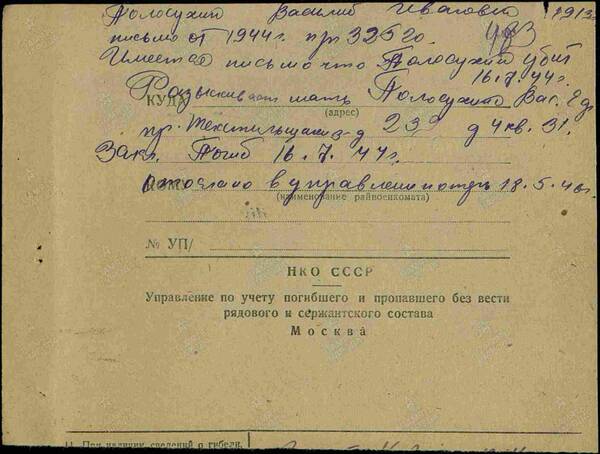 Полосухин Василий Иванович 1913
письмо от 1944г. пр 32520.
Имеется письмо что Полосухин убит
16.7.44г.
Разыскивает мать Полосухина Вас.
КУДА
(адрес)
пр. Текстильщиков д 23 д 4 кв. 31.
Закл. Погиб 16.7.44г.
отослано в управление потерь 18.5.46г.
(наименование райвоенкомата)
№ УП/
НКО СССР
Управление по учету погибшего и пропавшего без вести
рядового и сержантского состава
Москва
11. При наличии сведений о гибели,